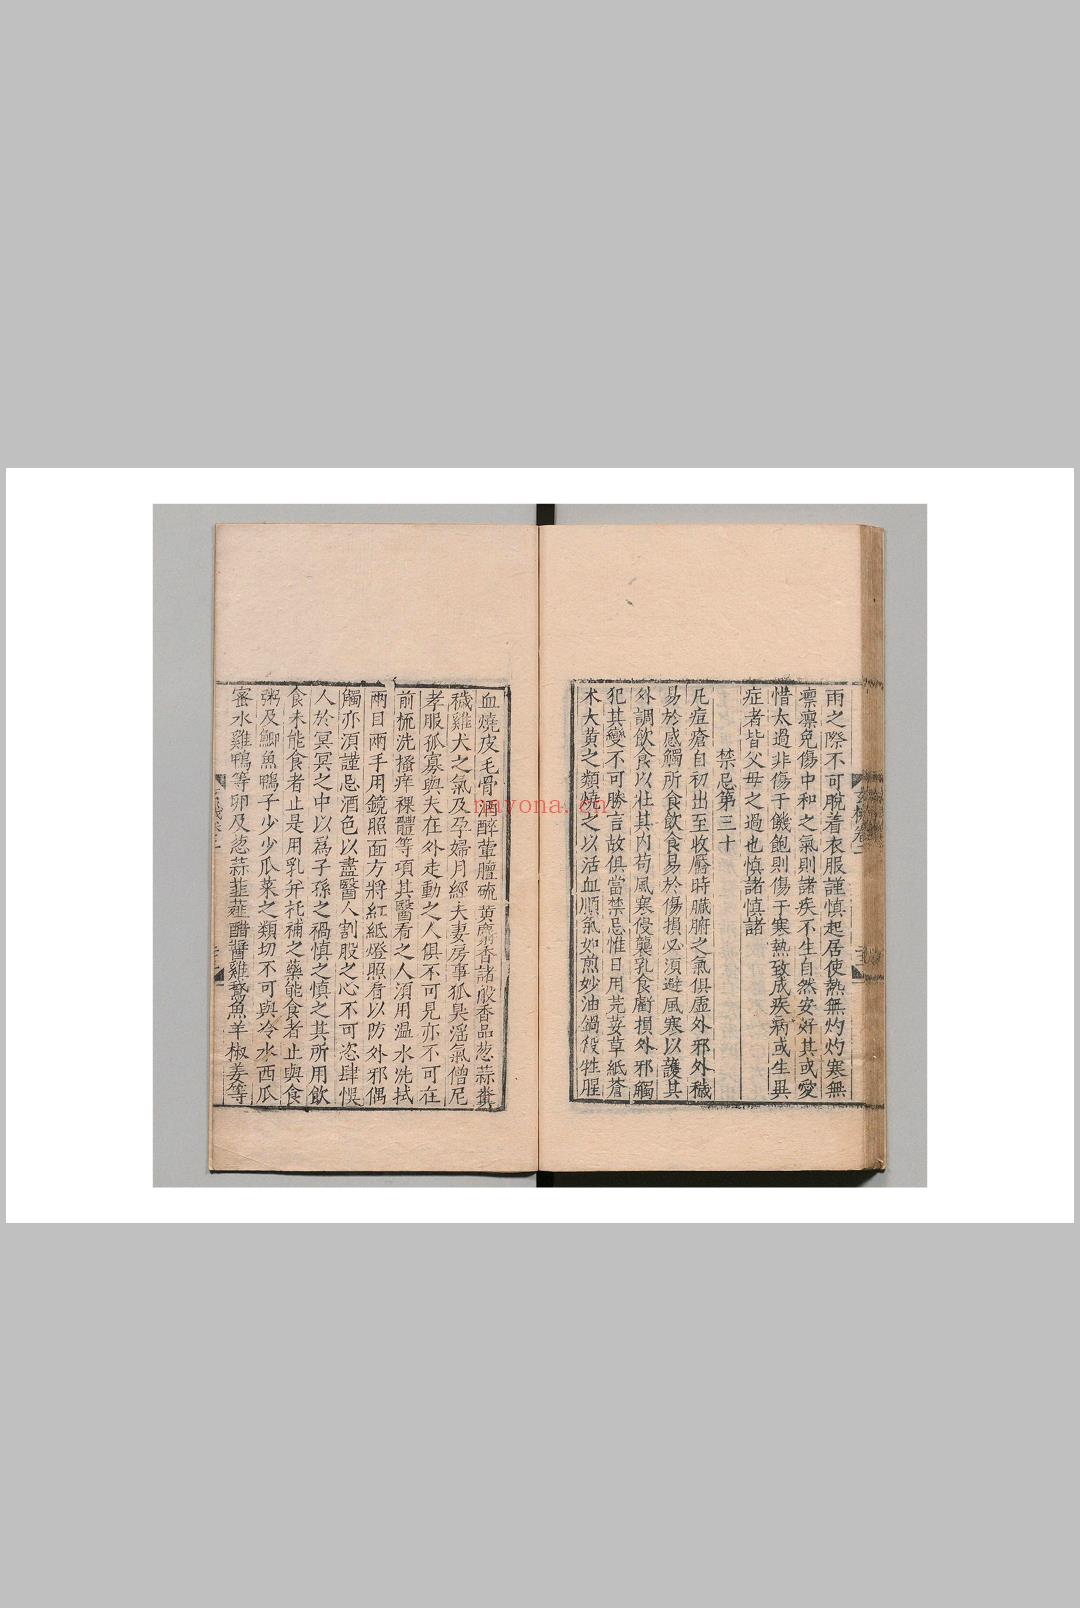 雨之際不可脫着衣服謹慎起居使熱無灼灼寒無
凛凛免傷中和之氣則諸疾不生自然安好其或愛
惜太過非傷于饑飽則傷于寒熱致成疾病或生異
症者皆父母之過也慎諸慎諸
禁忌第三十
凡痘瘡自初出至收靨時臟腑之氣俱虛外邪外穢
易於感觸所食飲食易於傷損必須避風寒以護其
外調飲食以壯其内苟風寒侵襲乳食虧損外邪觸
犯其變不可勝言故俱當禁忌惟日用芫荽草紙蒼
术大黄之類燒之以活血順氣如煎妙油鍋役牲腥
血燒皮毛骨酒醉葷膻硫黄麝香諸般香品葱蒜糞
穢雞犬之氣及孕婦月經夫妻房事狐臭淫氣僧尼
孝服孤寡與夫在外走動之人俱不可見亦不可在
前梳洗搔痒裸體等項其醫看之人須用温水洗拭
兩目兩手用鏡照面方將紅紙燈照看以防外邪偶
觸亦須謹忌酒色以盡醫人割股之心不可恣肆悞
人於冥冥之中以爲子孫之禍慎之慎之其所用飲
食未能食者止是用乳并托補之藥能食者止與食
粥及鯽魚鴨子少少瓜菜之類切不可與冷水西瓜
蜜水雞鴨等卵及葱蒜韭薤醋醬雞鵞魚羊椒姜等
nayona.cn